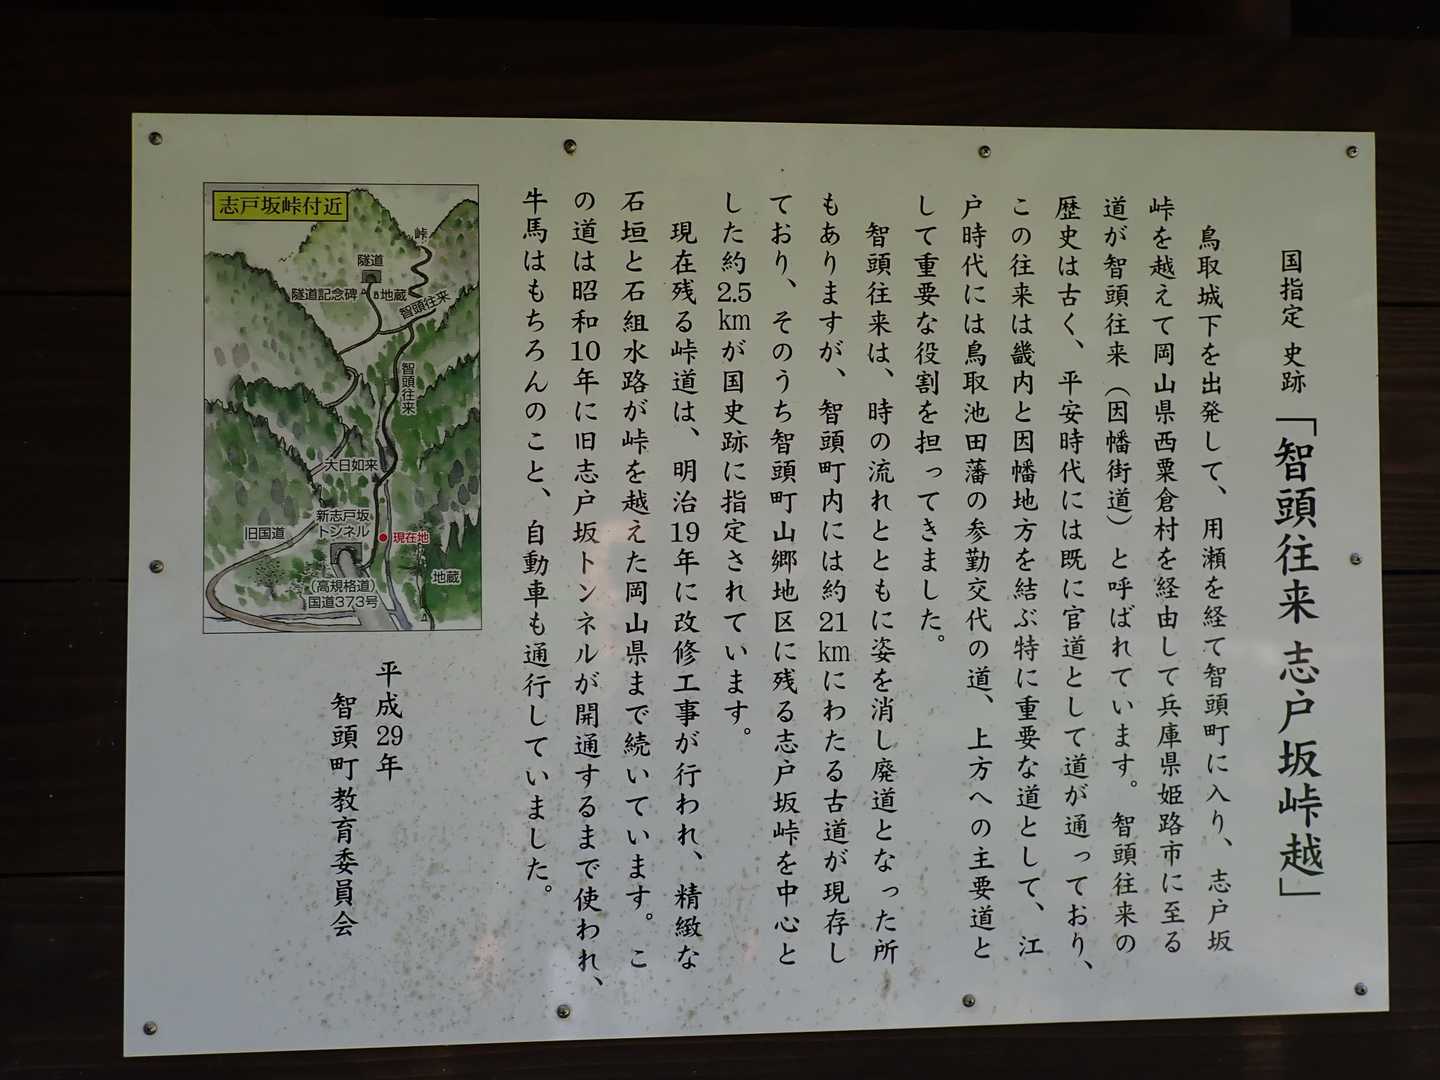 国指定 史跡 「智頭往来 志戸坂峠越」
鳥取城下を出発して、用瀬を経て智頭町に入り、志戸坂
峠を越えて岡山県西粟倉村を経由して兵庫県姫路市に至る
道が智頭往来（因幡街道）と呼ばれています。智頭往来の
歴史は古く、平安時代には既に官道として道が通っており、
この往来は畿内と因幡地方を結ぶ特に重要な道として、江
戸時代には鳥取池田藩の参勤交代の道、上方への主要道と
して重要な役割を担ってきました。
智頭往来は、時の流れとともに姿を消し廃道となった所
もありますが、智頭町内には約21㎞にわたる古道が現存し
ており、そのうち智頭町山郷地区に残る志戸坂峠を中心と
した約2.5㎞が国史跡に指定されています。
現在残る峠道は、明治19年に改修工事が行われ、精緻な
石垣と石組水路が峠を越えた岡山県まで続いています。こ
の道は昭和10年に旧志戸坂トンネルが開通するまで使われ、
牛馬はもちろんのこと、自動車も通行していました。
平成29年
智頭町教育委員会
志戸坂峠付近
峠
隧道
隧道記念碑
地蔵
智頭往来
智頭往来
大日如来
新志戸坂
トンネル
旧国道
現在地
地蔵
（高規格道）
国道373号